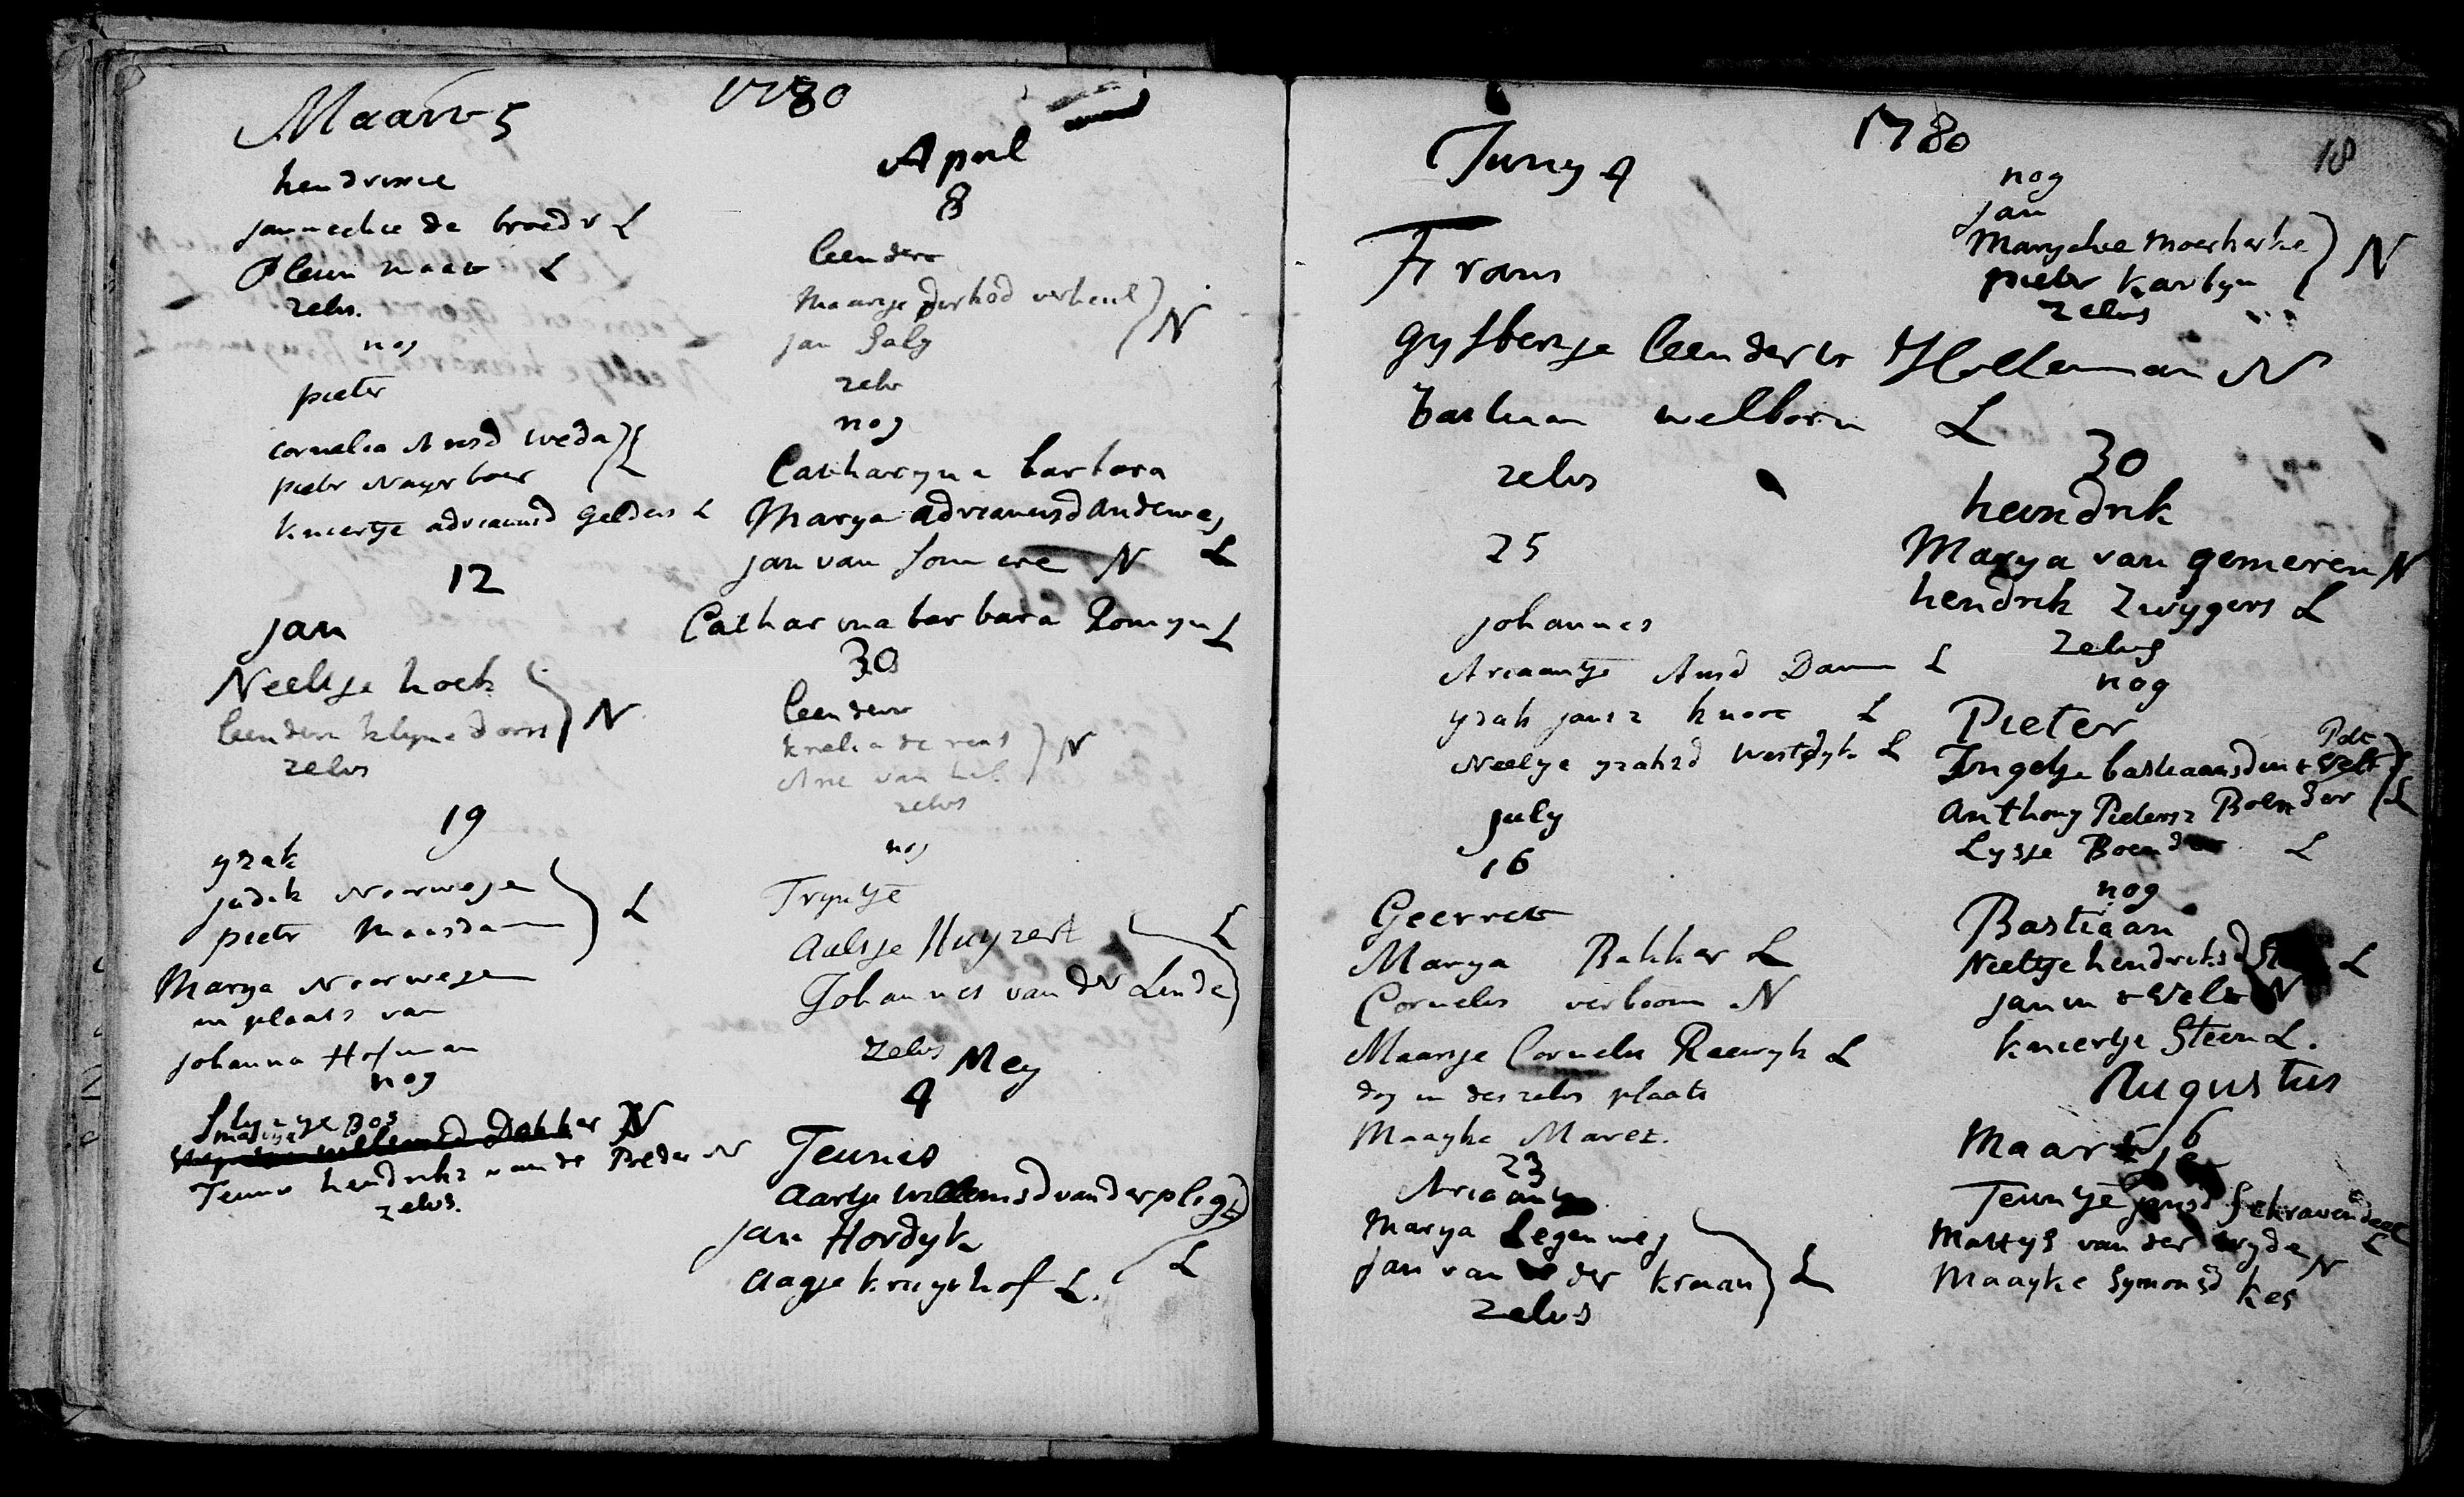 Maart 5
1780
hendrikie
jannechie de broeder L
Pleun maat L
zelvs.
nog
pieter
cornelia Arisd weda
pieter Nayerboer L
kneertje adriaansd Gelders L
12
jan
Neeltje hoek
leendert kleynedorst N
zelvs
19
yzak
judik Noorwege
pieter Maasdam L
Marya Noorwege
in plaats van
johanna Hofman
nog
Bos
Dekker N
Teunis hendriksz van de Polder N
zelvs.
April
8
leendert
Maartje verheul
jan Saly N
zelvs
nog
Catharyna barbara
Marya adriaansd Andeweg L
jan van Someren N
Catharina barbara Romyn L
30
leendert
knelia de reus
Arie van hil N
zelvs
nog
Tryntje
Aaltje Huyzert L
Johannes van der Linde
zelvs
Mey
4
Teunis
Aartje Willemsd van der pligt
jan Hordyk L
Aagje kruythof L.
1780
18
Juny 4
Frans
gysbertje leenderts Holleman N
bastiaan welboren L
zelvs
25
johannes
Ariaantje Ansd Dam L
yzak jansz knoot L
Neeltje yzaksd Westdyk L
july
16
Geerret
Marya Bakker L
Cornelis verboom N
Maartje Cornelis Raewyk L
dog in deszelvs plaats
Maayke Marez.
23
Ariaantje
Marya Legenweg
jan van der kraan L
zelvs
nog
jan
Marychie Moerkerke
pieter karteyn N
zelvs
30
hendrik
Marya van gemeren N
hendrik Zwygers L
zelvs
nog
Pieter
Polt
Ingetje bastiaansd in t Velt
Anthony Pietersz Boender L
Lysje Boender L
nog
Bastiaan
Neeltje hendriksd L
jan in t Velt N
kneertje Steen L.
Augustus
Maart 6
Teuntje jansd Schravendeel L
Mattys van der wyde N
Maayke Symonsd kes